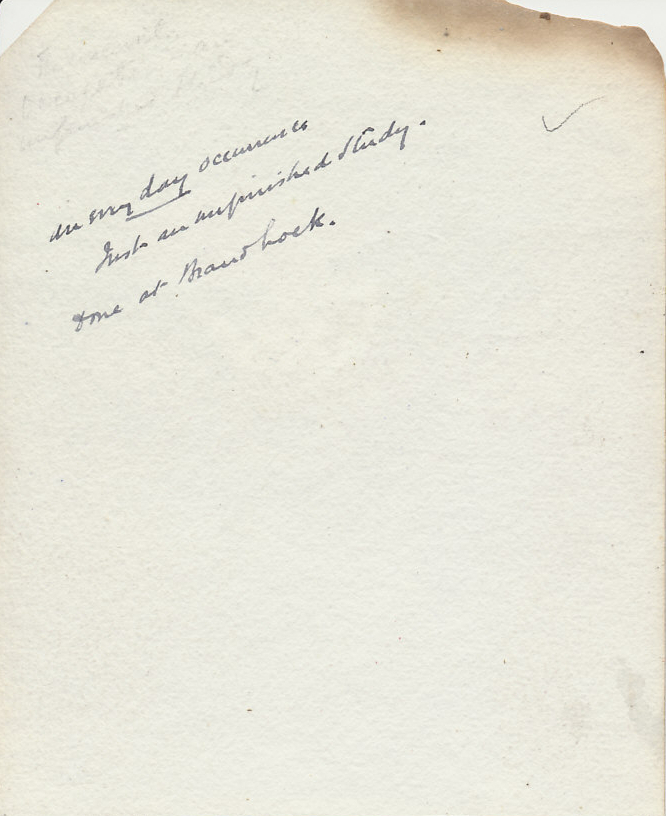 an every day occurrence
Just an unfinished study.
Done at Brandhoek.